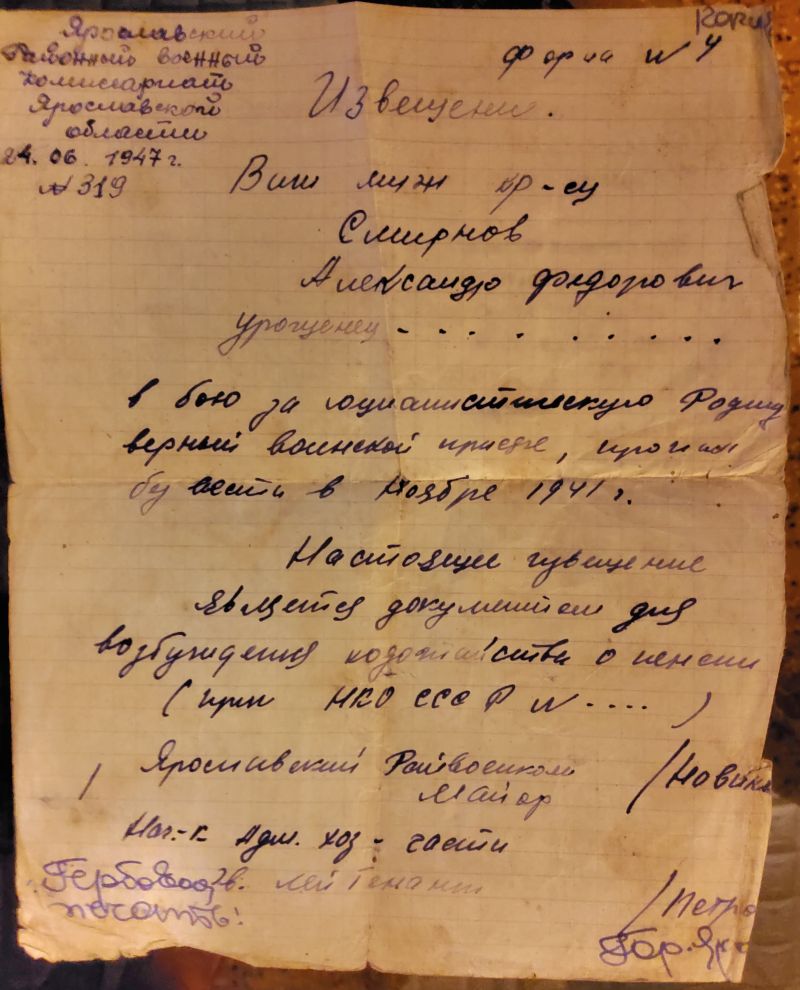 Копия
Ярославский
Районный военный
Комиссариат
Ярославской
области
24. 06. 1947 г.
N 319
форма N 4
Извещение.
Ваш муж кр-ец
Смирнов
Александр Федорович
урощенец - . . . . . . . . .
в бою за социалистическую Родину
верный воинской присяге, пропал
без вести в Ноябре 1941 г.
Настоящее извещение
является документом для
возбуждения ходотайства о пенсии
(прик НКО СССР N - . . . )
/ Ярославский Райвоенком
Майор /Новик
Нач-к Адм. хоз - части
лейтенант /Петро
Гербовая
печать!